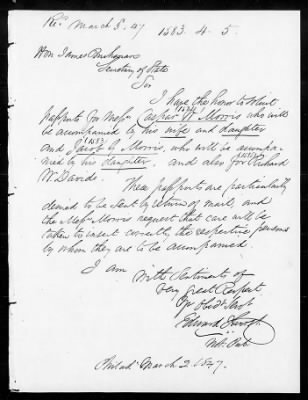 Recd March 5. 47 1583. 4. 5.
Hon James Buchanan
Secretary of State
Sir
I have the honor to solicit
passports for Messrs Caspar W. Morris who will
be accompanied by his wife and daughter
and Jacob G. Morris, who will is accompa-
nied by his daughter. and also for Richard
W. Davids.
These passports are particularly
desired to be sent by return of mail, and
the Messrs Morris request that care will be
taken to insert correctly, the respective persons
by whom they are to be accompanied
I am
With Sentiments of
Very great Respect
Yr Obedt Servt
Edward Hurst
Not. Pub.
Philada March 2. 1847.